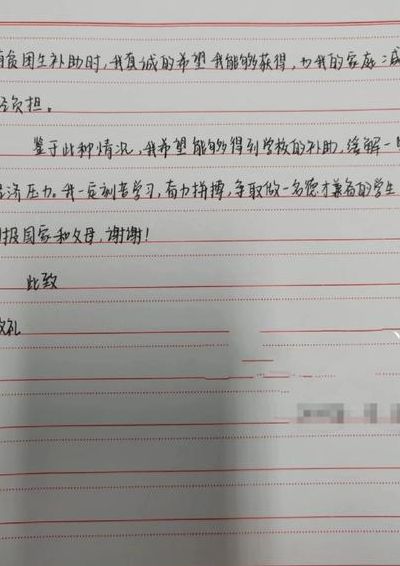 贫困生补助时,我真诚的希望我能够获得,为我的家庭减
经负担。
鉴于此种情况,我希望能够得到学校的补助,缓解一
经济压力。我一定刻苦学习,奋力拼搏,争取做一名德才兼备的学生
报国家和父母,谢谢!
此致
敬礼